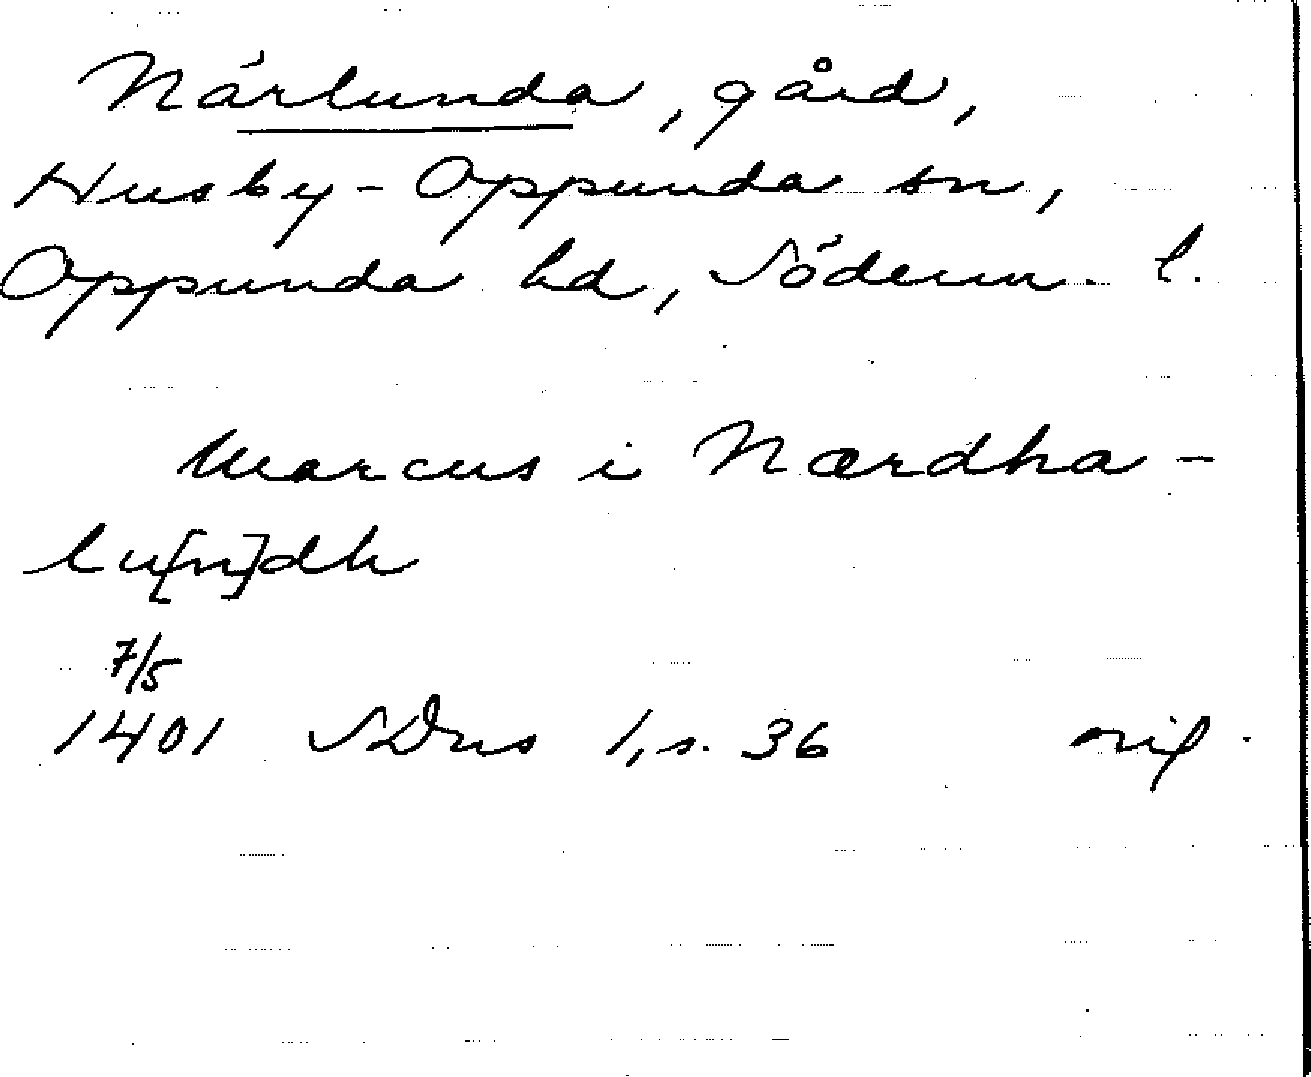 Närlunda, gård,
Husby-Oppunda sn,
Oppunda hd, Söderm. l.
Marcus i Nærdha-
lu[n]dh
7/5
1401 SDns 1, s. 36 orig.